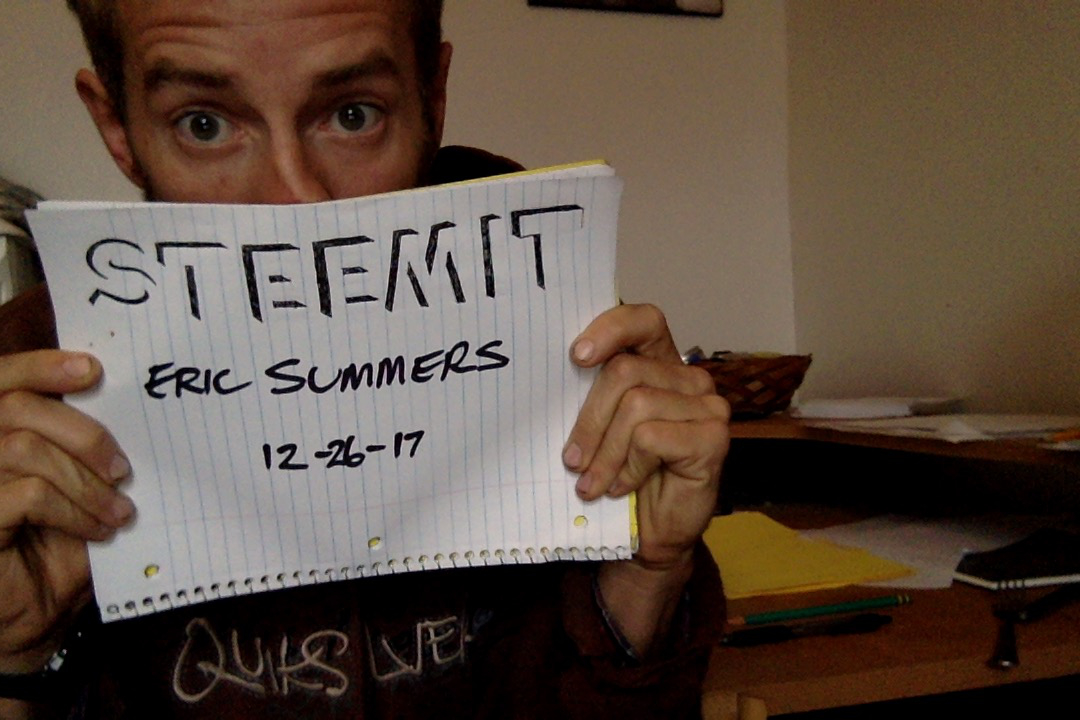 STEEMIT
ERIC SUMMERS
12-26-17
QUIKSILVE